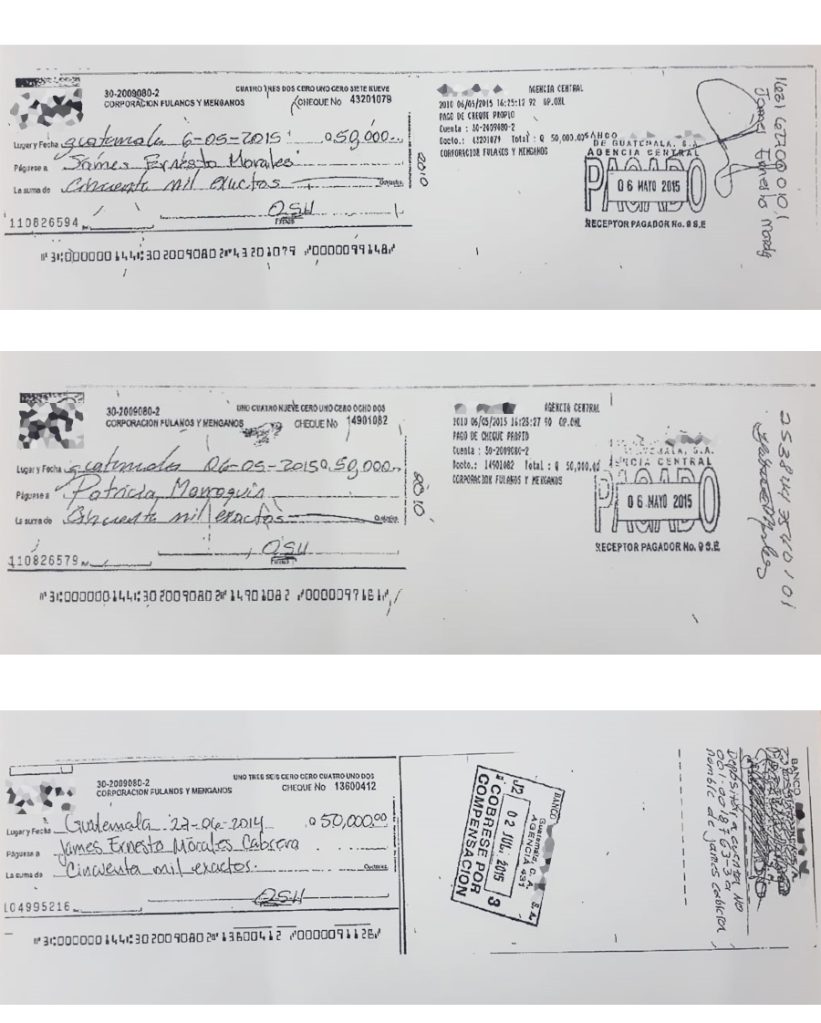 30-2009080-2
CUATRO TRES DOS CERO UNO CERO SIETE NUEVE
CORPORACION FULANOS Y MENGANOS
CHEQUE No 43201079
Lugar y Fecha Guatemala 6-05-2015 Q 50,000
Páguese a James Ernesto Morales
La suma de Cincuenta mil exactos Quetzales
QSH
FIRMA
110826594
2010
AGENCIA CENTRAL
2010 06/05/2015 16:25:17 92 OP.ONL
PAGO DE CHEQUE PROPIO
Cuenta : 30-2009080-2
Docto.: 43201079 Total : Q 50,000.00
CORPORACION FULANOS Y MENGANOS
BANCO
DE GUATEMALA, S.A.
AGENCIA CENTRAL
PAGADO
06 MAYO 2015
RECEPTOR PAGADOR No. 9 S.E
30-2009080-2
UNO CUATRO NUEVE CERO UNO CERO OCHO DOS
CORPORACION FULANOS Y MENGANOS
CHEQUE No 14901082
Lugar y Fecha Guatemala 06-05-2015 Q 50,000
Páguese a Patricia Marroquin
La suma de Cincuenta mil exactos Quetzales
QSH
FIRMA
110826579
2010
AGENCIA CENTRAL
2010 06/05/2015 16:25:27 90 OP.ONL
PAGO DE CHEQUE PROPIO
Cuenta : 30-2009080-2
Docto.: 14901082 Total : Q 50,000.00
CORPORACION FULANOS Y MENGANOS
AGENCIA CENTRAL
PAGADO
06 MAYO 2015
RECEPTOR PAGADOR No. 9 S.E
30-2009080-2
UNO TRES SEIS CERO CERO CUATRO UNO DOS
CORPORACION FULANOS Y MENGANOS
CHEQUE No 13600412
Lugar y Fecha Guatemala 27-06-2014 Q 50,000.00
Páguese a James Ernesto Morales Cabrera
La suma de Cincuenta mil exactos. Quetzales
QSH
104995216
BANCO
Guatemala, C. A.
AGENCIA 431
02 JUL. 2015
3
COBRESE POR
COMPENSACION
BANCO
Depositar a cuenta No
nombre de James cabrera